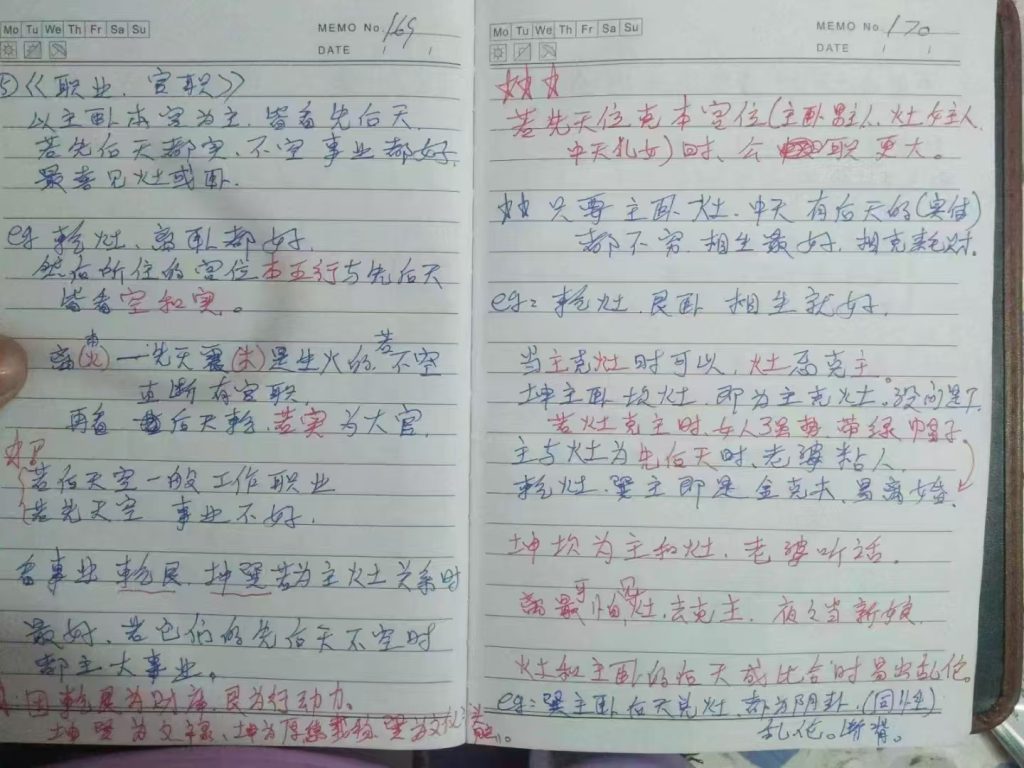 Mo Tu We Th Fr Sa Su
MEMO No. 169
DATE / /
⑤《职业、官职》
以主卧本宫为主,皆看先后天
若先后天都实、不空事业都好,
最喜见灶或卧.
eg 乾灶、离卧都好,
然后所住的宫位本五行与先后天
皆看空和实。
离(火)一先天震(木)是生火的若不空
直断有官职,
再看后天乾,若实为大官,
若后天空一般工作职业
若先天空 事业不好.
看事业 乾艮、坤巽若为主灶关系时
最好,若它们的先后天不空时
都主大事业。
因乾艮为财库,艮为行动力。
坤巽为文禄、坤为厚德载物 巽为文
Mo Tu We Th Fr Sa Su
MEMO No. 170
DATE / /
若先天位克本宫位(主卧男主人、灶女主人,
中天儿女)时、公职更大。
只要主卧、灶、中天有后天的(实住)
都不穷.相生最好,相克
eg: 乾灶、艮卧 相生就好.
当主克灶时可以,灶忌克主。
坤主卧坎灶,即为主克灶,没问题
若灶克主时,女人强势,带绿帽子,
主与灶为先后天时,老婆粘人,
乾灶、巽主即是金克木,易离婚.
坤坎为主和灶,老婆听话。
离最怕灶,去克主,夜夜当新娘
灶和主卧的后天成比合时易出乱伦。
eg: 巽主卧后天兑灶,都为阴卦,(同性)
乱伦。断背。